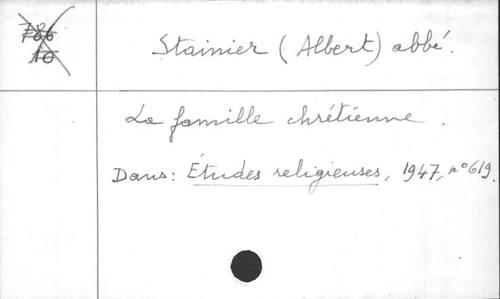 786
10
Stainier (Albert) abbé.
La famille chrétienne.
Dans: Études religieuses, 1947, n° 619.